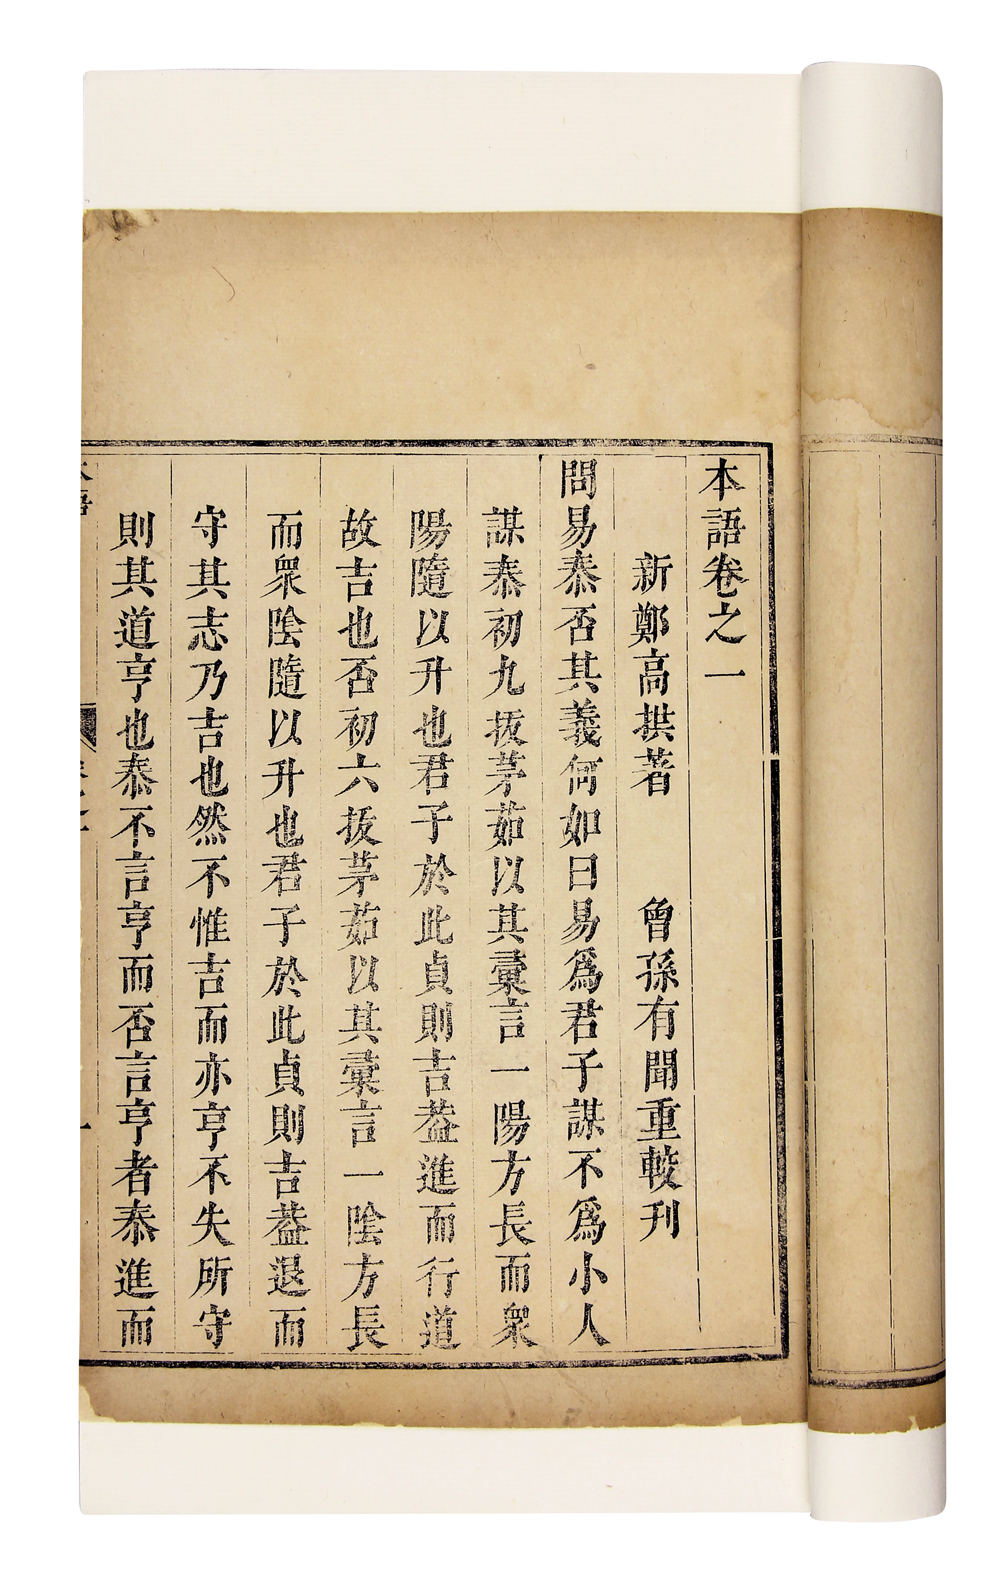 本語卷之一
新鄭高拱著 曾孫有聞重較刊
問易泰否其義何如曰易爲君子謀不爲小人
謀泰初九拔茅茹以其彙言一陽方長而衆
陽隨以升也君子於此貞則吉葢進而行道
故吉也否初六拔茅茹以其彙言一陰方長
而衆陰隨以升也君子於此貞則吉葢退而
守其志乃吉也然不惟吉而亦亨不失所守
則其道亨也泰不言亨而否言亨者泰進而
本語